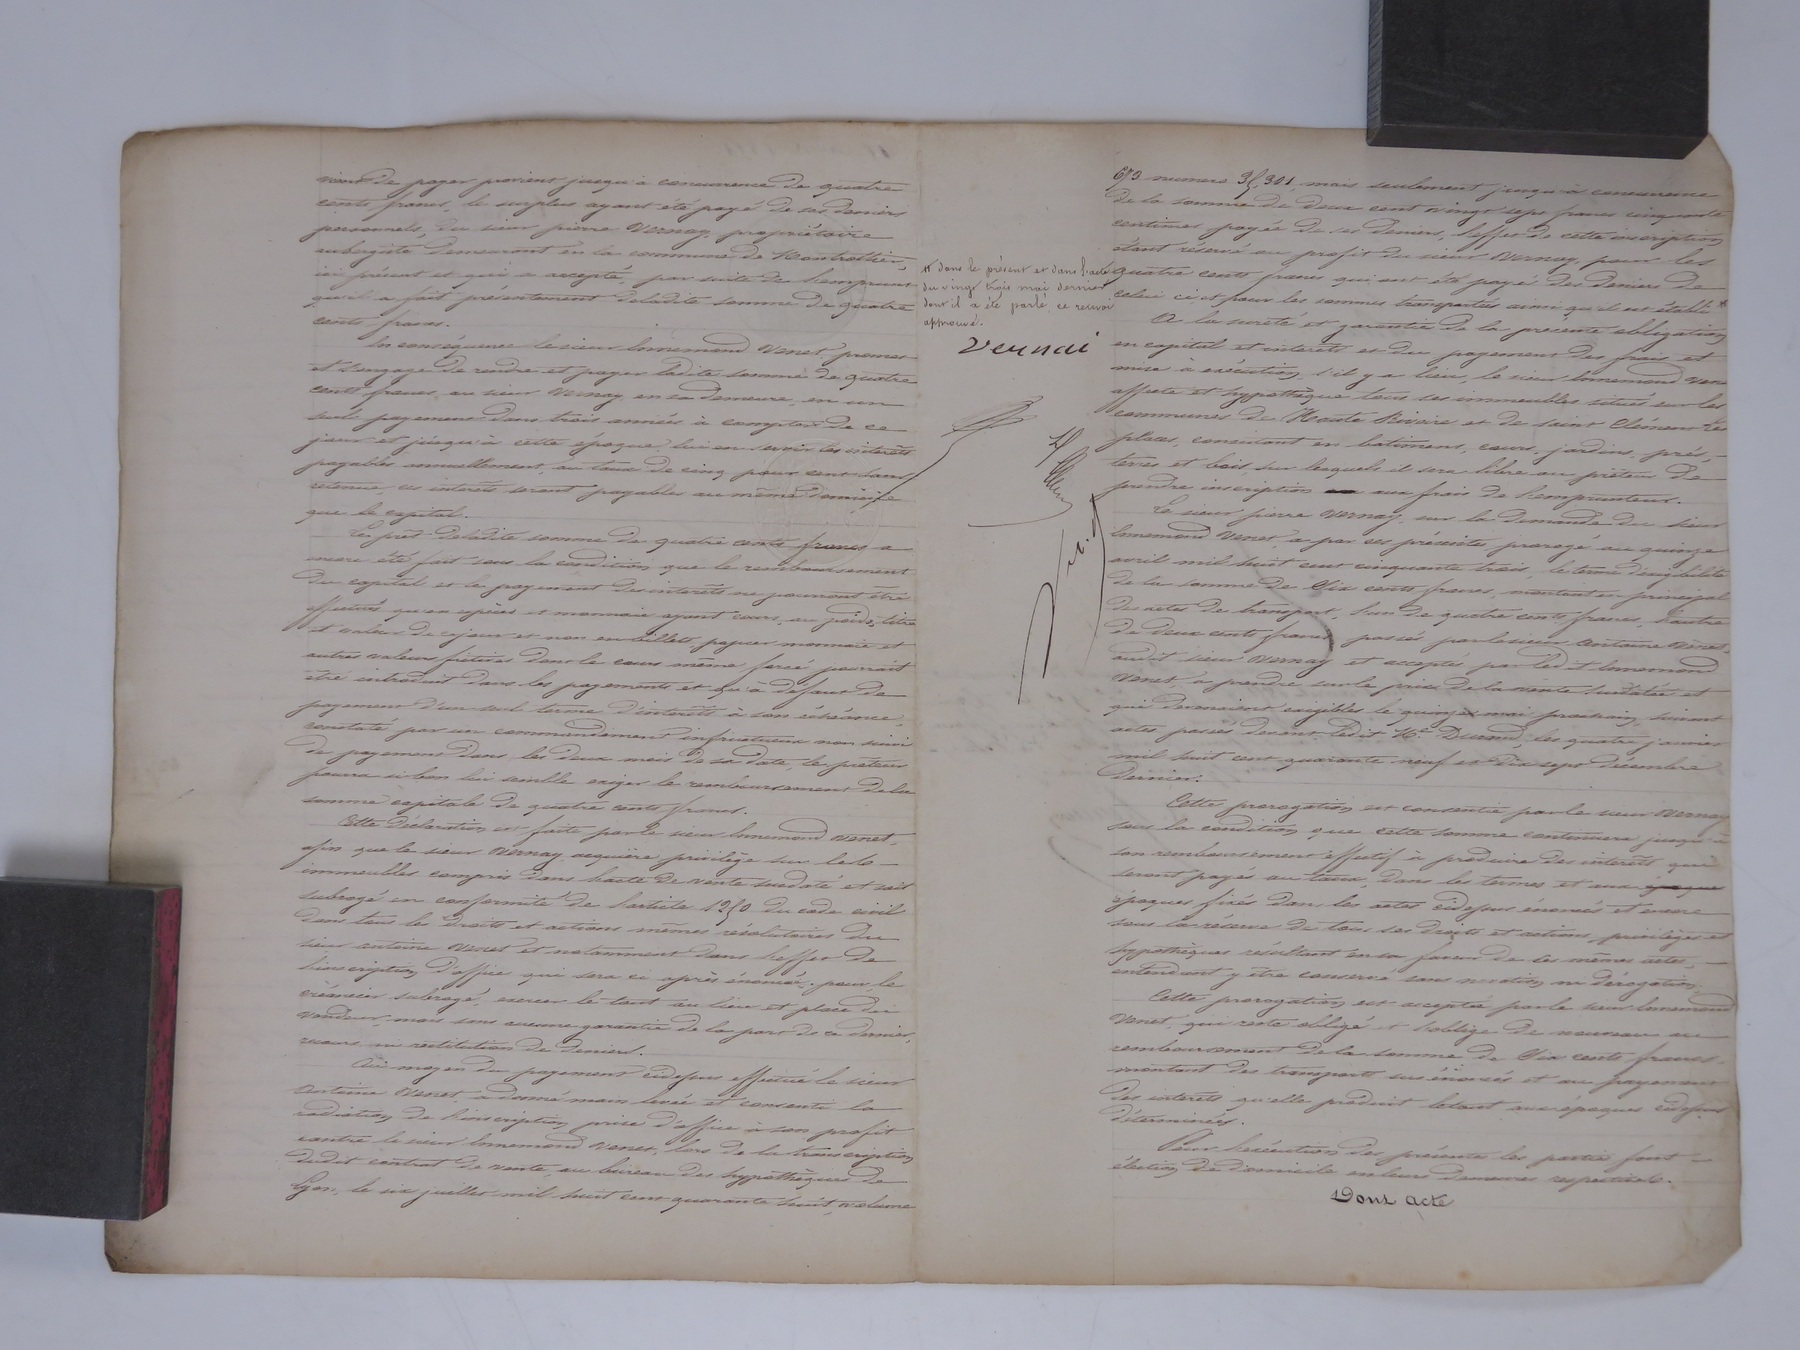 vient de payer provient jusqu'à concurrence de quatre
cents francs, le surplus ayant été payé de ses deniers
personnels, du sieur pierre Vernay, propriétaire
aubergiste demeurant en la commune de Montrottier,
ici présent et qui a accepté, par suite de l'emprunt
qu'il a fait présentement deladite somme de quatre
cents francs.
En conséquence le sieur Ennemond Venet promet
et s'engage de rendre et payer ladite somme de quatre
cents francs au sieur Vernay en sa demeure, en un
seul payement dans trois années à compter de ce
jour et jusqu'à cette époque lui en servir les intérêts
payables annuellement, au taux de cinq pour cent sans
retenue, ces intérêts seront payables au même domicile
que le capital.
Le prêt deladite somme de quatre cents francs a
encore été fait sous la condition que le remboursement
du capital et le payement des intérêts ne pourront être
effectués qu'en espèces et monnaie ayant cours, au poids, titre
et valeur de ce jour et non en billets, papier monnaie et
autres valeurs fictives dont le cours même forcé pourrait
être introduit dans les payements et qu'à défaut de
payement d'un seul terme d'intérêts à son échéance,
constaté par un commandement infructueux non suivi
de payement dans les deux mois de sa date, le prêteur
pourra si bon lui semble exiger le remboursement dela
somme capitale de quatre cents francs.
Cette déclaration est faite par le sieur Ennemond Venet,
afin que le sieur Vernay acquière privilège sur les
immeubles compris dans l'acte de vente susdaté et soit
subrogé en conformité de l'article 1250 du code civil
dans tous les droits et actions mêmes résolutoires du
sieur antoine Venet et notamment dans l'effet de
l'inscription d'office qui sera ci après énoncée, pour le
créancier subrogé, exercer le tout au lieu et place du
vendeur, mais sans aucune garantie de la part de ce dernier,
recours, ni restitution de deniers.
Au moyen du payement cidessus effectué le sieur
antoine Venet a donné main levée et consenti la
radiation de l'inscription prise d'office à son profit
contre le sieur Ennemond Venet, lors de la transcription
dudit contrat de vente, au bureau des hypothèques de
Lyon, le six juillet mil huit cent quarante huit, volume
* dans le présent et dans l'acte
du vingt trois mai dernier
dont il a été parlé, ce renvoi
approuvé.
Vernai
653 numero 35,301, mais seulement jusqu'à concurrence
de la somme de deux cent vingt sept francs cinquante
centimes payée de ses deniers, l'effet de cette inscription
étant réservé au profit du sieur Vernay, pour les
quatre cents francs qui ont été payé des deniers de
celui ci et pour les sommes transportées ainsi qu'il est établi *
A la sureté et garantie de la présente obligation
en capital et intérêts et du payement des frais et
mise à exécution, s'il y a lieu, le sieur Ennemond Venet
affecte et hypothèque tous ses immeubles situés sur les
communes de Haute Rivoire et de saint Clément les
places, consistant en batiment, cours, jardins, prés,
terres et bois sur lesquels il sera libre au prêteur de
prendre inscription aux frais de l'emprunteur.
Le sieur pierre Vernay, sur la demande du sieur
Ennemond Venet, a par ces présentes prorogé au quinze
avril mil huit cent cinquante trois, le terme d'exigibilité
de la somme de Six cents francs, montant en principal
des actes de transport, l'un de quatre cents francs, l'autre
de deux cents francs, passés par le sieur Antoine Venet
audit sieur Vernay et acceptés par ledit Ennemond
Venet à prendre sur le prix de la vente susdatée et
qui devenaient exigibles le quinze mai prochain, suivant
actes passés devant ledit Me Durand, les quatre janvier
mil huit cent quarante neuf et dix sept décembre
dernier.
Cette prorogation est consentie par le sieur Vernay
sous la condition que cette somme continuera jusqu'à
son remboursement effectif à produire des intérêts qui
seront payés au taux, dans les termes et aux époque
époques fixés dans les actes cidessus énoncés et encore
sous la réserve de tous ses droits et actions, privilèges et
hypothèques résultant en sa faveur de ces mêmes actes,
entendant y être conservé sans novation ni dérogation.
Cette prorogation est acceptée par le sieur Ennemond
Venet, qui reste obligé et s'oblige de nouveau au
remboursement de la somme de Six cents francs
montant des transports sus énoncés et au payement
des intérêts qu'elle produit le tout aux époques cidessus
déterminées.
Pour l'exécution des présentes les parties font
élection de domicile en leurs demeures respectives.
Dont acte